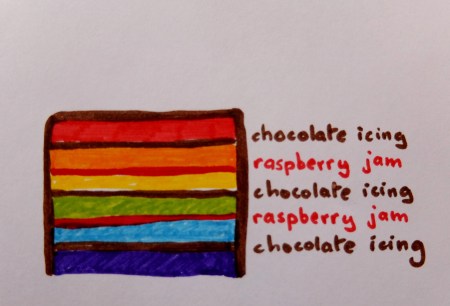 chocolate icing
raspberry jam
chocolate icing
raspberry jam
chocolate icing